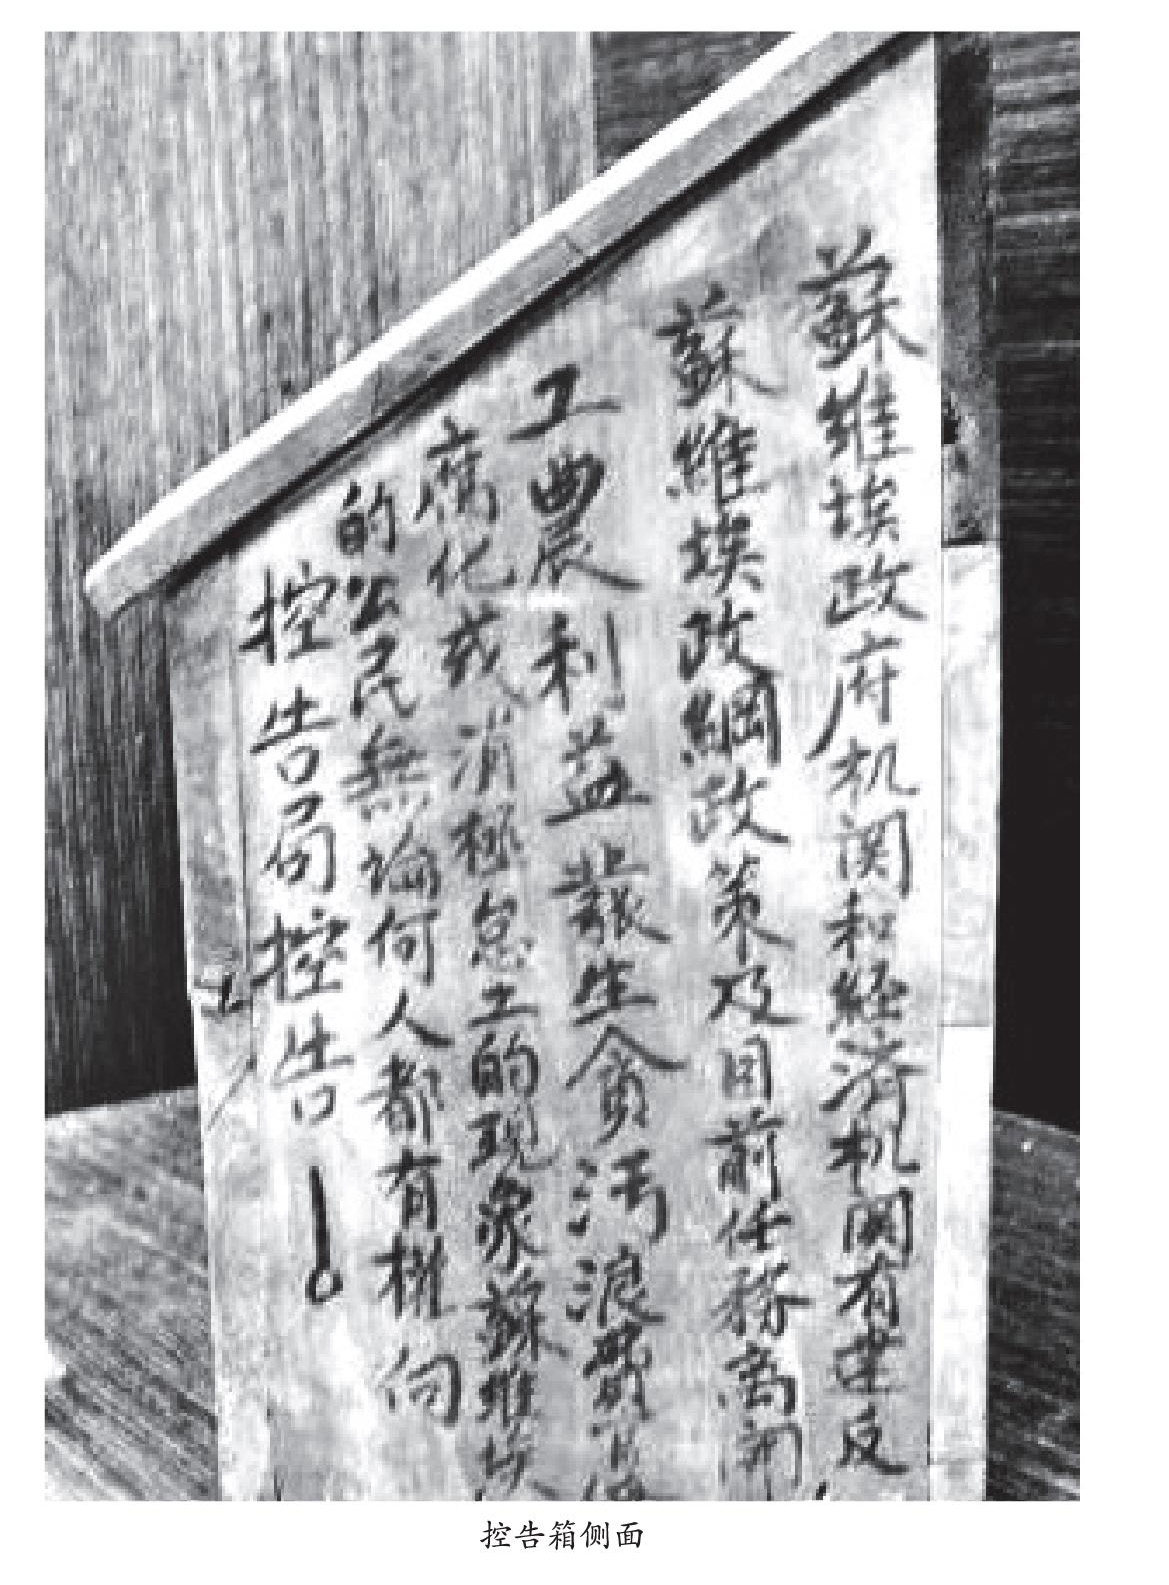 蘇維埃政府机関和経済机関有違反
蘇維埃政綱政策及目前任務离開
工農利益發生貪汚浪費官僚
腐化或消極怠工的現象蘇維埃
的公民無論何人都有權向
控告局控告！
控告箱侧面